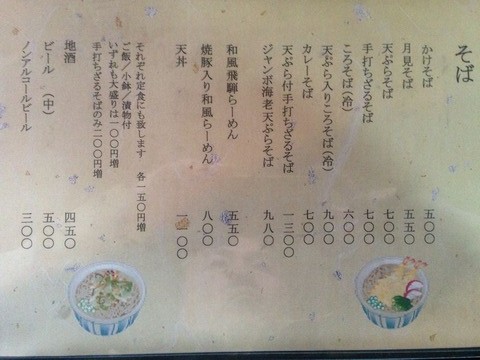 そば
かけそば 五〇〇
月見そば 五五〇
天ぷらそば 七〇〇
手打ちざるそば 七〇〇
ころそば(冷) 六〇〇
天ぷら入りころそば(冷) 九〇〇
カレーそば 七〇〇
天ぷら付手打ちざるそば 一三〇〇
ジャンボ海老天ぷらそば 九八〇
和風飛騨らーめん 五五〇
焼豚入り和風らーめん 八〇〇
天丼
それぞれ定食にも致します 各一五〇円増
ご飯/小鉢/漬物付
いずれも大盛りは一〇〇円増
手打ちざるそばのみ二〇〇円増
地酒 四五〇
ビール (中) 五〇〇
ノンアルコールビール 三〇〇